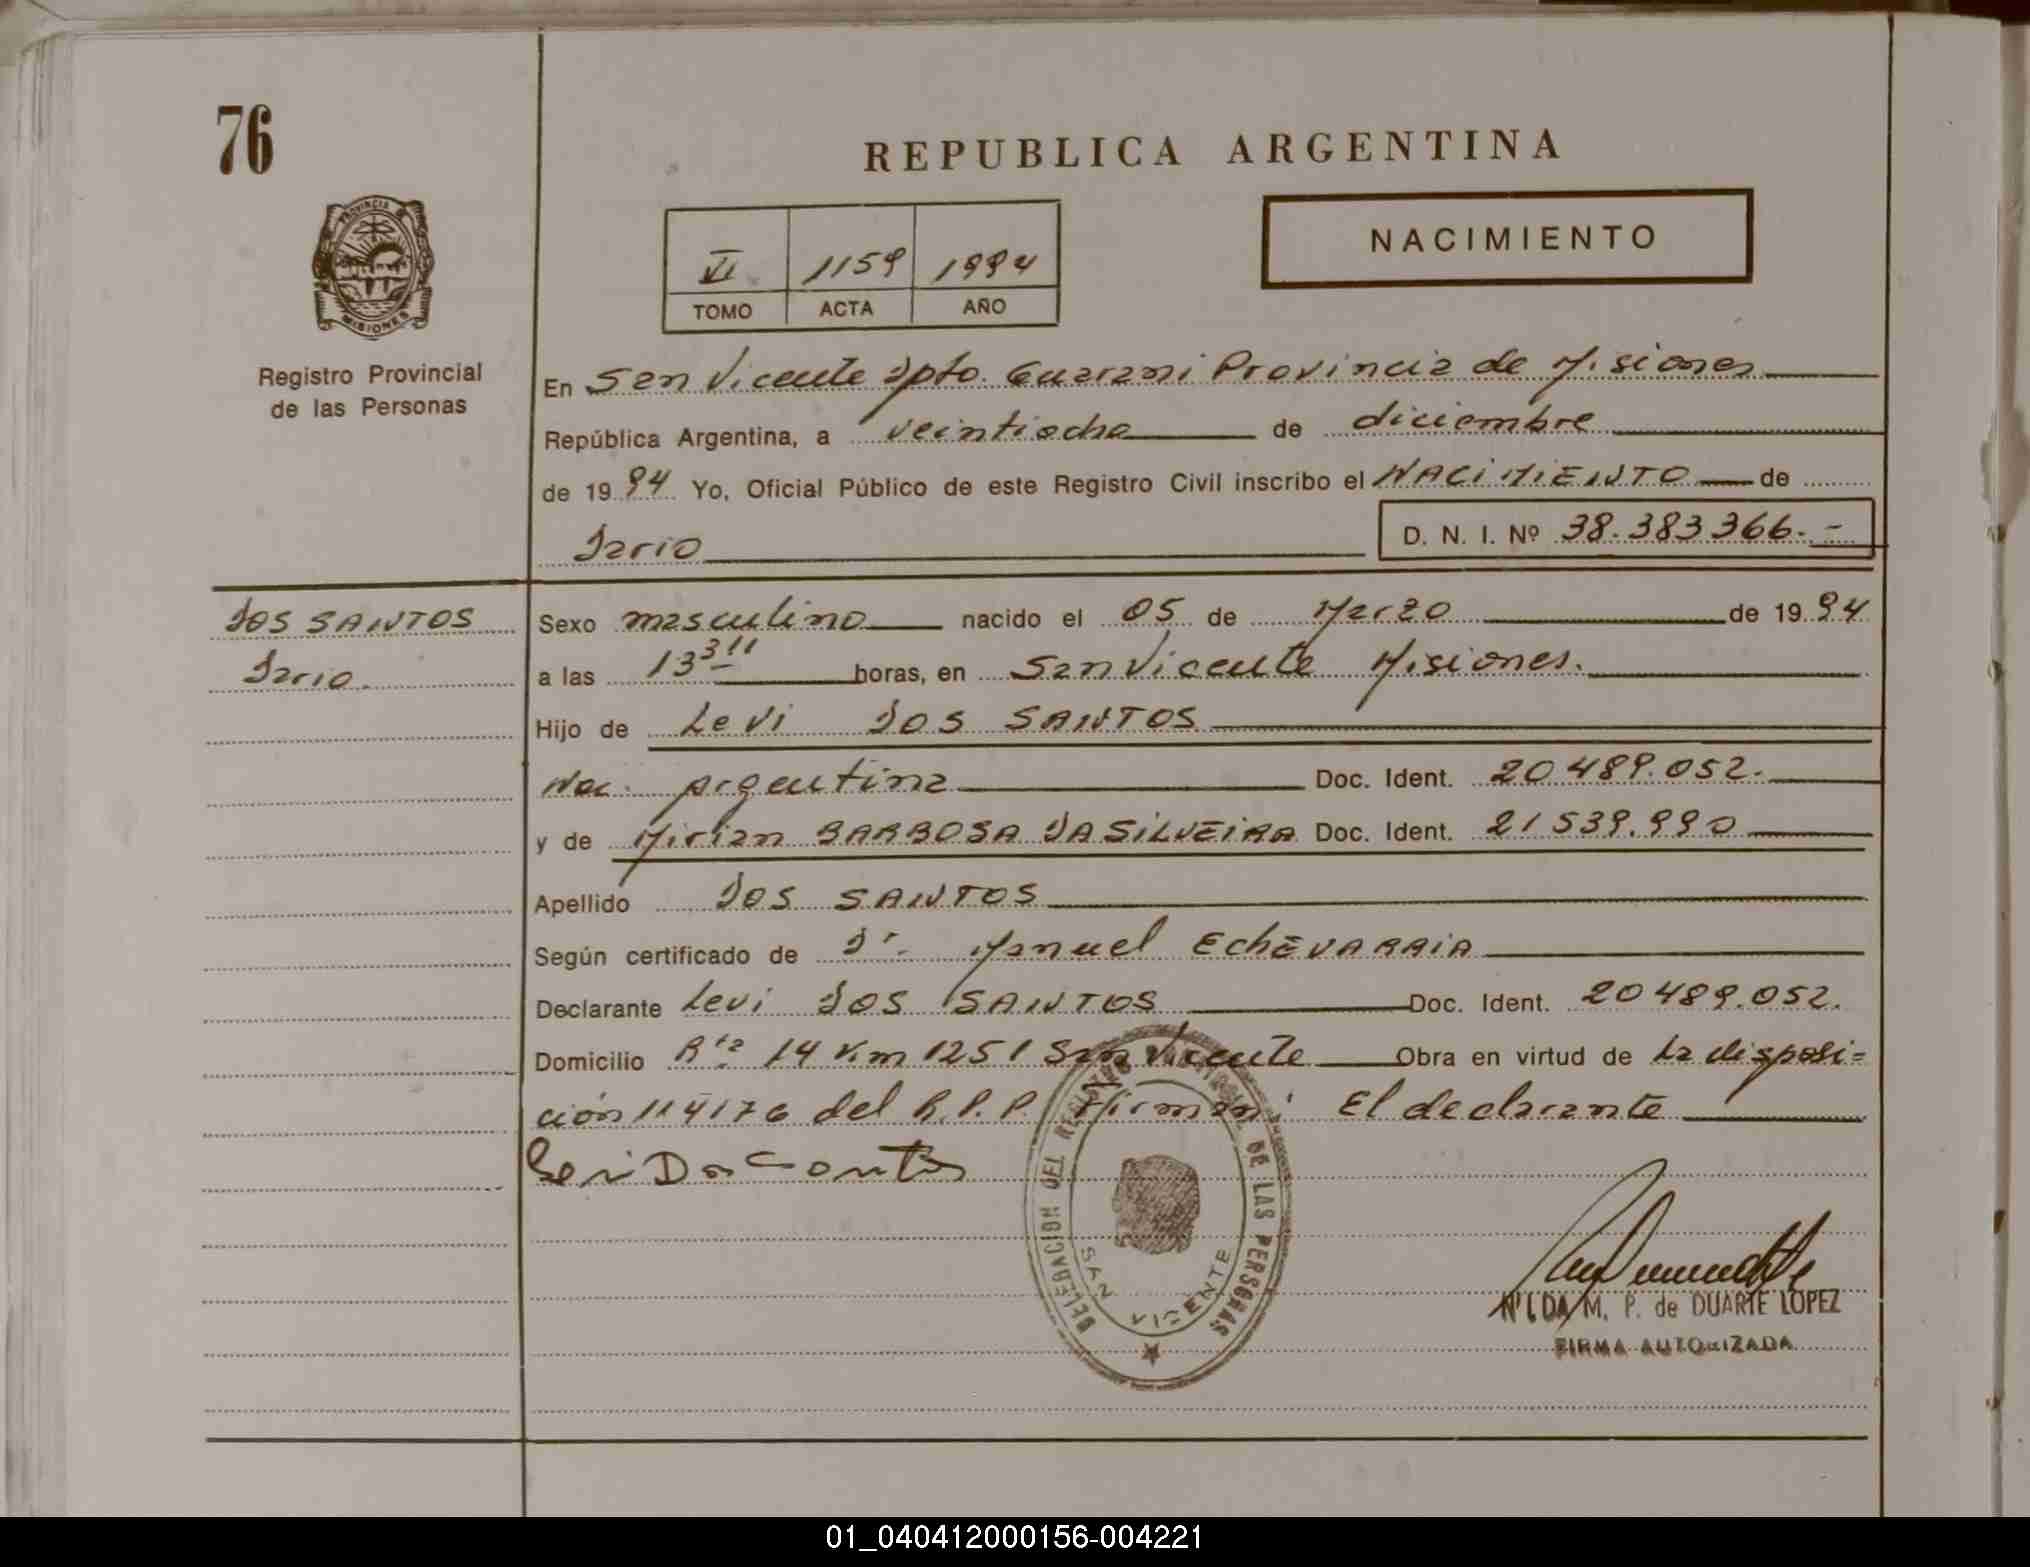 76
REPUBLICA ARGENTINA
PROVINCIA DE
MISIONES
Registro Provincial
de las Personas
VI 1159 1994
TOMO ACTA AÑO
NACIMIENTO
En San Vicente Dpto. Guarani Provincia de Misiones
República Argentina, a veintiocho de diciembre
de 1994 Yo, Oficial Público de este Registro Civil inscribo el NACIMIENTO de
Dario D. N. I. Nº 38.383366.-
DOS SANTOS
Dario.
Sexo masculino nacido el 05 de Marzo de 1994
a las 13 horas, en San Vicente Misiones.
Hijo de Levi DOS SANTOS
Nac. Argentina Doc. Ident. 20489.052.
y de Mirian BARBOSA DASILVEIRA Doc. Ident. 21539.990
Apellido DOS SANTOS
Según certificado de Dr. Manuel EchEVARRIA
Declarante Levi DOS SANTOS Doc. Ident. 20489.052.
Domicilio Rta 14 Km 1251 San Vicente Obra en virtud de La disposi=
ción 114176 del R.P.P. Firman: El declarante
DELEGACION DEL REGISTRO PROVINCIAL DE LAS PERSONAS
SAN VICENTE
NILDA M. P. de DUARTE LOPEZ
FIRMA AUTORIZADA
01_040412000156-004221